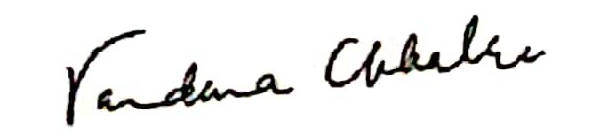 Vandana Chhabra